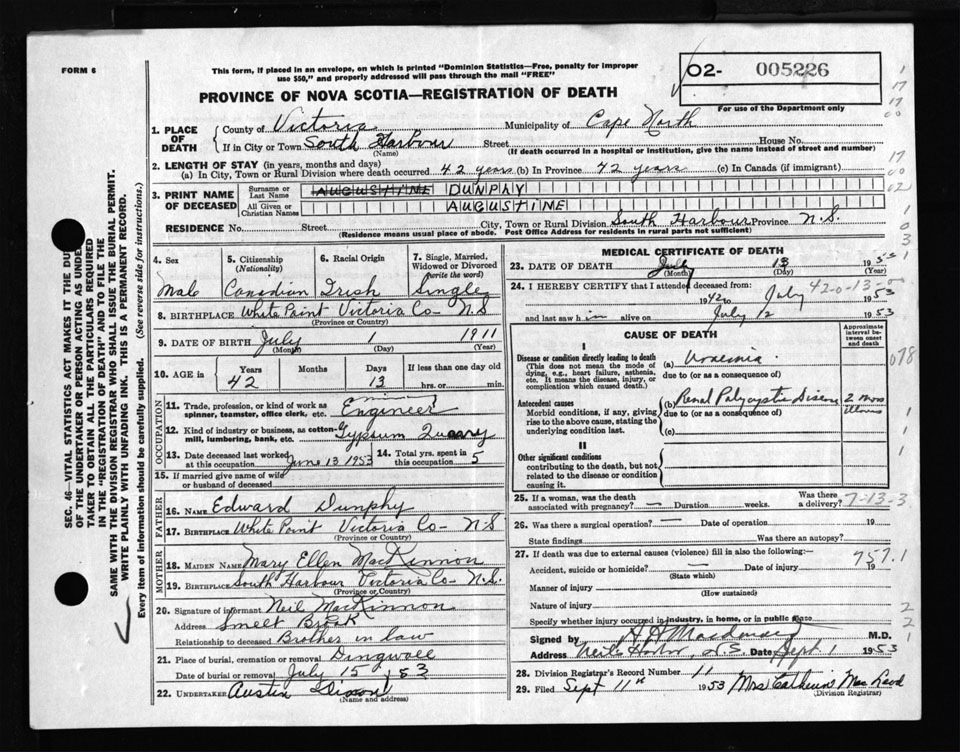 FORM 6
This form, if placed in an envelope, on which is printed "Dominion Statistics—Free, penalty for improper
use $50," and properly addressed will pass through the mail "FREE"
O2- 005226
PROVINCE OF NOVA SCOTIA—REGISTRATION OF DEATH
For use of the Department only
1. PLACE OF DEATH
County of Victoria Municipality of Cape North
If in City or Town South Harbour Street House No.
(Name) (If death occurred in a hospital or institution, give the name instead of street and number)
2. LENGTH OF STAY (in years, months and days)
(a) In City, Town or Rural Division where death occurred 42 years (b) In Province 42 years (c) In Canada (if immigrant)
3. PRINT NAME OF DECEASED
Surname or Last Name AUGUSTINE DUNPHY
All Given or Christian Names AUGUSTINE
RESIDENCE No. Street City, Town or Rural Division South Harbour Province N.S.
(Residence means usual place of abode. Post Office Address for residents in rural parts not sufficient)
4. Sex
Male
5. Citizenship
(Nationality)
Canadian
6. Racial Origin
Irish
7. Single, Married,
Widowed or Divorced
(write the word)
Single
8. BIRTHPLACE White Point Victoria Co- N-S
(Province or Country)
9. DATE OF BIRTH July 1 1911
(Month) (Day) (Year)
10. AGE in
Years Months Days If less than one day old
42 13 hrs. or min.
OCCUPATION
11. Trade, profession, or kind of work as
spinner, teamster, office clerk, etc. Engineer
12. Kind of industry or business, as cotton-
mill, lumbering, bank, etc. Gypsum Quarry
13. Date deceased last worked
at this occupation June 13 1953
14. Total yrs. spent in
this occupation 5
15. If married give name of wife
or husband of deceased
FATHER
16. NAME Edward Dunphy
17. BIRTHPLACE White Point Victoria Co- N-S
(Province or Country)
MOTHER
18. MAIDEN NAME Mary Ellen MacKinnon
19. BIRTHPLACE South Harbour Victoria Co- N.S.
(Province or Country)
20. Signature of informant Neil MacKinnon
Address Smelt Brook
Relationship to deceased Brother in law
21. Place of burial, cremation or removal Dingwall
Date of burial or removal July 15 1953
22. UNDERTAKER Austin
(Name and address)
MEDICAL CERTIFICATE OF DEATH
23. DATE OF DEATH July 13 1953
(Month) (Day) (Year)
24. I HEREBY CERTIFY that I attended deceased from
1942 to July 1953
and last saw him alive on July 12 1953
42-0-13-0
CAUSE OF DEATH
Approximate interval between onset and death
I
Disease or condition directly leading to death
(This does not mean the mode of
dying, e.g., heart failure, asthenia,
etc. It means the disease, injury, or
complication which caused death.)
(a) Uraemia
due to (or as a consequence of)
Antecedent causes
Morbid conditions, if any, giving
rise to the above cause, stating the
underlying condition last.
(b) Renal Polycystic Disease 2 mos
due to (or as a consequence of) illness
(c)
II
Other significant conditions
contributing to the death, but not
related to the disease or condition
causing it.
25. If a woman, was the death
associated with pregnancy? — Duration weeks.
Was there
a delivery?
7-13-3
26. Was there a surgical operation? — Date of operation 19
State findings Was there an autopsy?
27. If death was due to external causes (violence) fill in also the following:—
Accident, suicide or homicide? — Date of injury 19
(State which)
757.1
Manner of injury
(How sustained)
Nature of injury
Specify whether injury occurred in industry, in home, or in public place
Signed by M.D.
Address Neils Harbor, N.S. Date Sept. 1 1953
28. Division Registrar's Record Number 11
29. Filed Sept 11th 1953 Mrs Catherine MacLeod
(Division Registrar)
SEC. 46—VITAL STATISTICS ACT MAKES IT THE DUTY
OF THE UNDERTAKER OR PERSON ACTING AS UNDER-
TAKER TO OBTAIN ALL THE PARTICULARS REQUIRED
IN THE "REGISTRATION OF DEATH" AND TO FILE THE
SAME WITH THE DIVISION REGISTRAR WHO SHALL ISSUE THE BURIAL PERMIT.
WRITE PLAINLY WITH UNFADING INK. THIS IS A PERMANENT RECORD.
Every item of information should be carefully supplied. (See reverse side for instructions.)